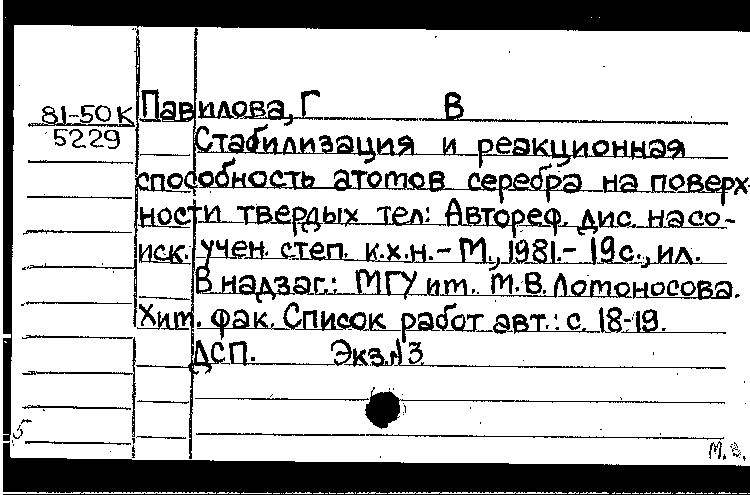 81-50К Павилова, Г В
5229 Стабилизация и реакционная
способность атомов серебра на поверх
ности твердых тел: Автореф. дис. на со-
иск. учен. степ. к.х.н. - М., 1981. - 19 с., ил.
В надзаг.: МГУ им. М.В. Ломоносова.
Хим. фак. Список работ авт.: с. 18-19.
ДСП. Экз. №3
5
М.В.